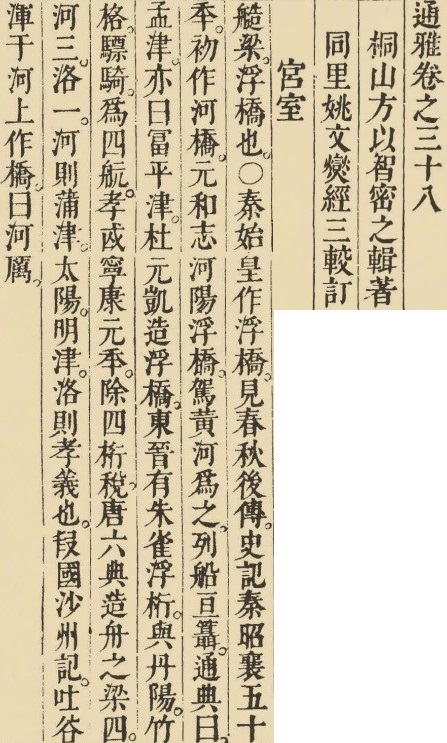 通雅卷之三十八
桐山方以智密之輯著
同里姚文燮經三較訂
宮室
艁梁。浮橋也。○秦始皇作浮橋。見春秋後傳。史記秦昭襄五十
年。初作河橋。元和志河陽浮橋。駕黃河爲之。列船亘䉖。通典曰。
孟津。亦曰富平津。杜元凱造浮橋。東晉有朱雀浮桁。與丹陽。竹
格。驃騎。爲四航。孝武寧康元年。除四桁稅。唐六典造舟之梁四。
河三。洛一。河則蒲津。太陽。明津。洛則孝義也。段國沙州記。吐谷
渾于河上作橋。曰河厲。